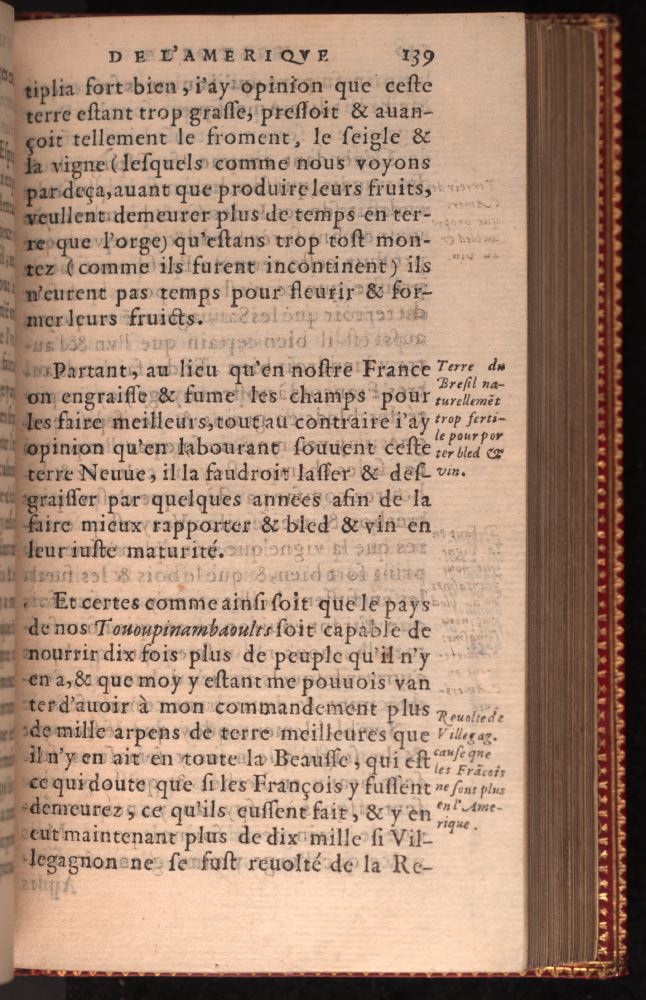 DE L'AMERIQVE 139
tiplia fort bien, i'ay opinion que ceſte
terre eſtant trop graſſe, preſſoit & auan-
çoit tellement le froment, le ſeigle &
la vigne (leſquels comme nous voyons
par deça, auant que produire leurs fruits,
veullent demeurer plus de temps en ter-
re que l'orge) qu'eſtans trop toſt mon-
tez (comme ils furent incontinent) ils
n'eurent pas temps pour fleurir & for-
mer leurs fruicts.
Partant, au lieu qu'en noſtre France
on engraiſſe & fume les champs pour
les faire meilleurs, tout au contraire i'ay
opinion qu'en labourant ſouuent ceſte
terre Neuue, il la faudroit laſſer & deſ-
graiſſer par quelques annees afin de la
faire mieux rapporter & bled & vin en
leur iuſte maturité.
Terre du
Breſil na-
turellemēt
trop ferti-
le pour por
ter bled &
vin.
Et certes comme ainſi ſoit que le pays
de nos Tououpinambaoults ſoit capable de
nourrir dix fois plus de peuple qu'il n'y
en a, & que moy y eſtant me pouuois van
ter d'auoir à mon commandement plus
de mille arpens de terre meilleures que
il n'y en ait en toute la Beauſſe, qui eſt
ce qui doute que ſi les François y fuſſent
demeurez, ce qu'ils euſſent fait, & y en
eut maintenant plus de dix mille ſi Vil-
legagnon ne ſe fuſt reuolté de la Re-
Reuolte de
Villegag.
cauſe que
les Frācois
ne ſont plus
en l'Ame-
rique.